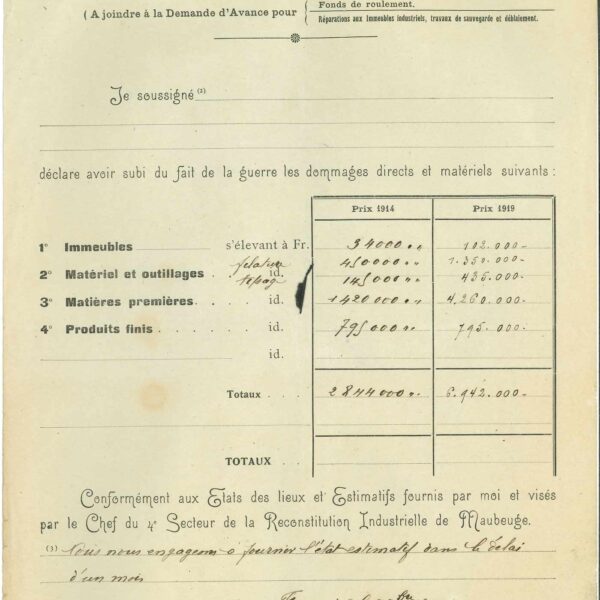 Fonds de roulement.
( A joindre à la Demande d'Avance pour
Réparations aux Immeubles industriels, travaux de sauvegarde et déblaiement.
Je soussigné (2)
déclare avoir subi du fait de la guerre les dommages directs et matériels suivants :
Prix 1914 Prix 1919
1° Immeubles s'élevant à Fr. 34000 102.000-
filature 450000 1.350.000-
2° Matériel et outillages . id. 145000 435.000-
3° Matières premières. . . . id. 1420000 4.260.000-
4° Produits finis . . . . . . id. 795000 795.000-
id.
Totaux . . 2844000 6.942.000-
TOTAUX . .
Conformément aux Etats des lieux et Estimatifs fournis par moi et visés
par le Chef du 4e Secteur de la Reconstitution Industrielle de Maubeuge.
(3) Nous nous engageons a fournir l'état estimatif dans le délai
d'un mois